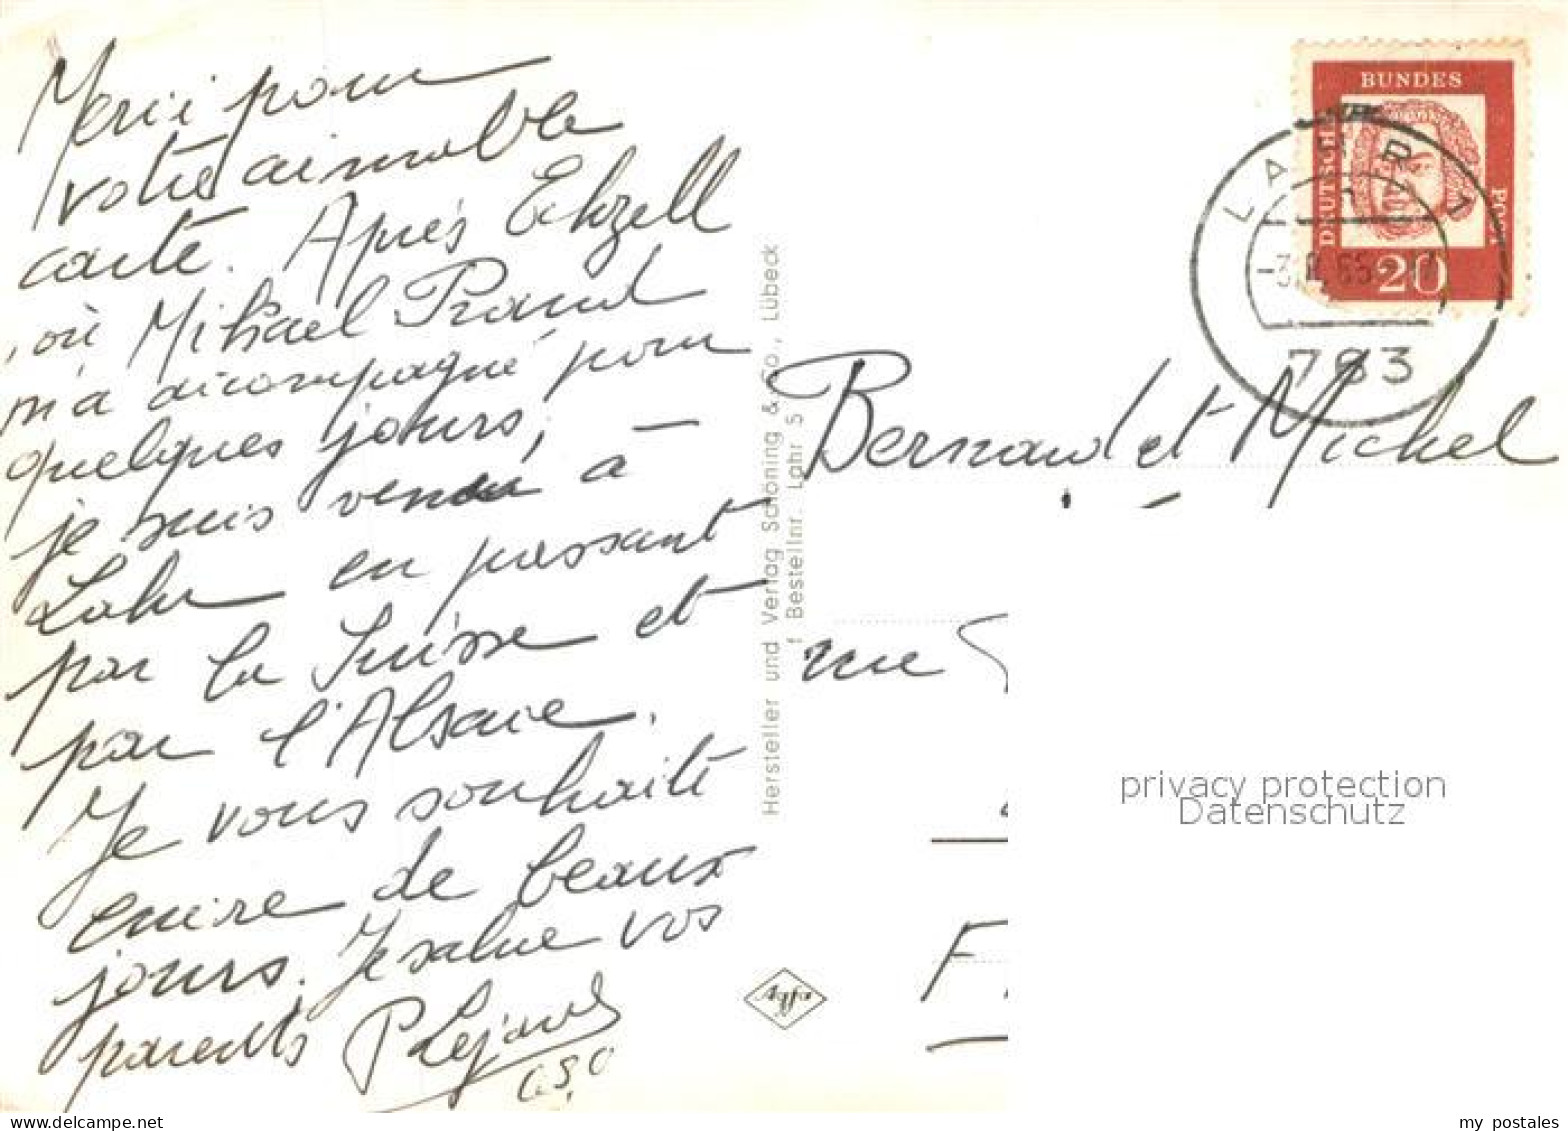 Merci pour
votre aimable
carte. Après Echzell
, où Mihael
m'a accompagné pour
quelques jours,
je suis venu à
Lahr en passant
par la Suisse et
par l'Alsace.
Je vous souhaite
encore de beaux
jours. Je salue vos
parents P Lejard
Hersteller und Verlag Schöning & Co., Lübeck
f Bestellnr. Lahr 5
BUNDES
DEUTSCHE
POST
20
LAHR 1
783
Bernard et Michel
rue
F
Agfa
privacy protection
Datenschutz
my postales